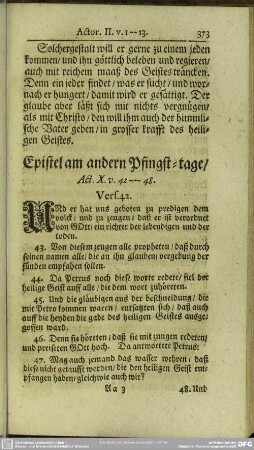 Actor. II. v. 1--13. 373
Solchergestalt will er gerne zu einem jeden
kommen/ und ihn göttlich beleben und regieren/
auch mit reichem maaß des Geistes träncken.
Denn ein jeder findet/ was er sucht/ und wor-
nach er hungert/ damit wird er gesättigt. Der
glaube aber läßt sich mit nichts vergnügen/
als mit Christo/ den will ihm auch der himmli-
sche Vater geben/ in grosser krafft des heili-
gen Geistes.
Epistel am andern Pfingst-tage/
Act. X. v. 42--48.
Vers. 42.
Und er hat uns geboten zu predigen dem
volck/ und zu zeugen/ daß er ist verordnet
von GOtt ein richter der lebendigen und der
todten.
43. Von diesem zeugen alle propheten/ daß durch
seinen namen alle/ die an ihn glauben/ vergebung der
sünden empfahen sollen.
44. Da Petrus noch diese worte redete/ fiel der
heilige Geist auff alle/ die dem wort zuhöreten.
45. Und die gläubigen aus der beschneidung/ die
mit Petro kommen waren/ entsatzten sich/ daß auch
auff die heyden die gabe des heiligen Geistes ausge-
gossen ward.
46. Denn sie höreten/ daß sie mit zungen redeten/
und preiseten GOtt hoch. Da antwortete Petrus:
47. Mag auch jemand das wasser wehren/ daß
diese nicht getaufft werden/ die den heiligen Geist em-
pfangen haben/ gleichwie auch wir?
Aa 3 48. Und